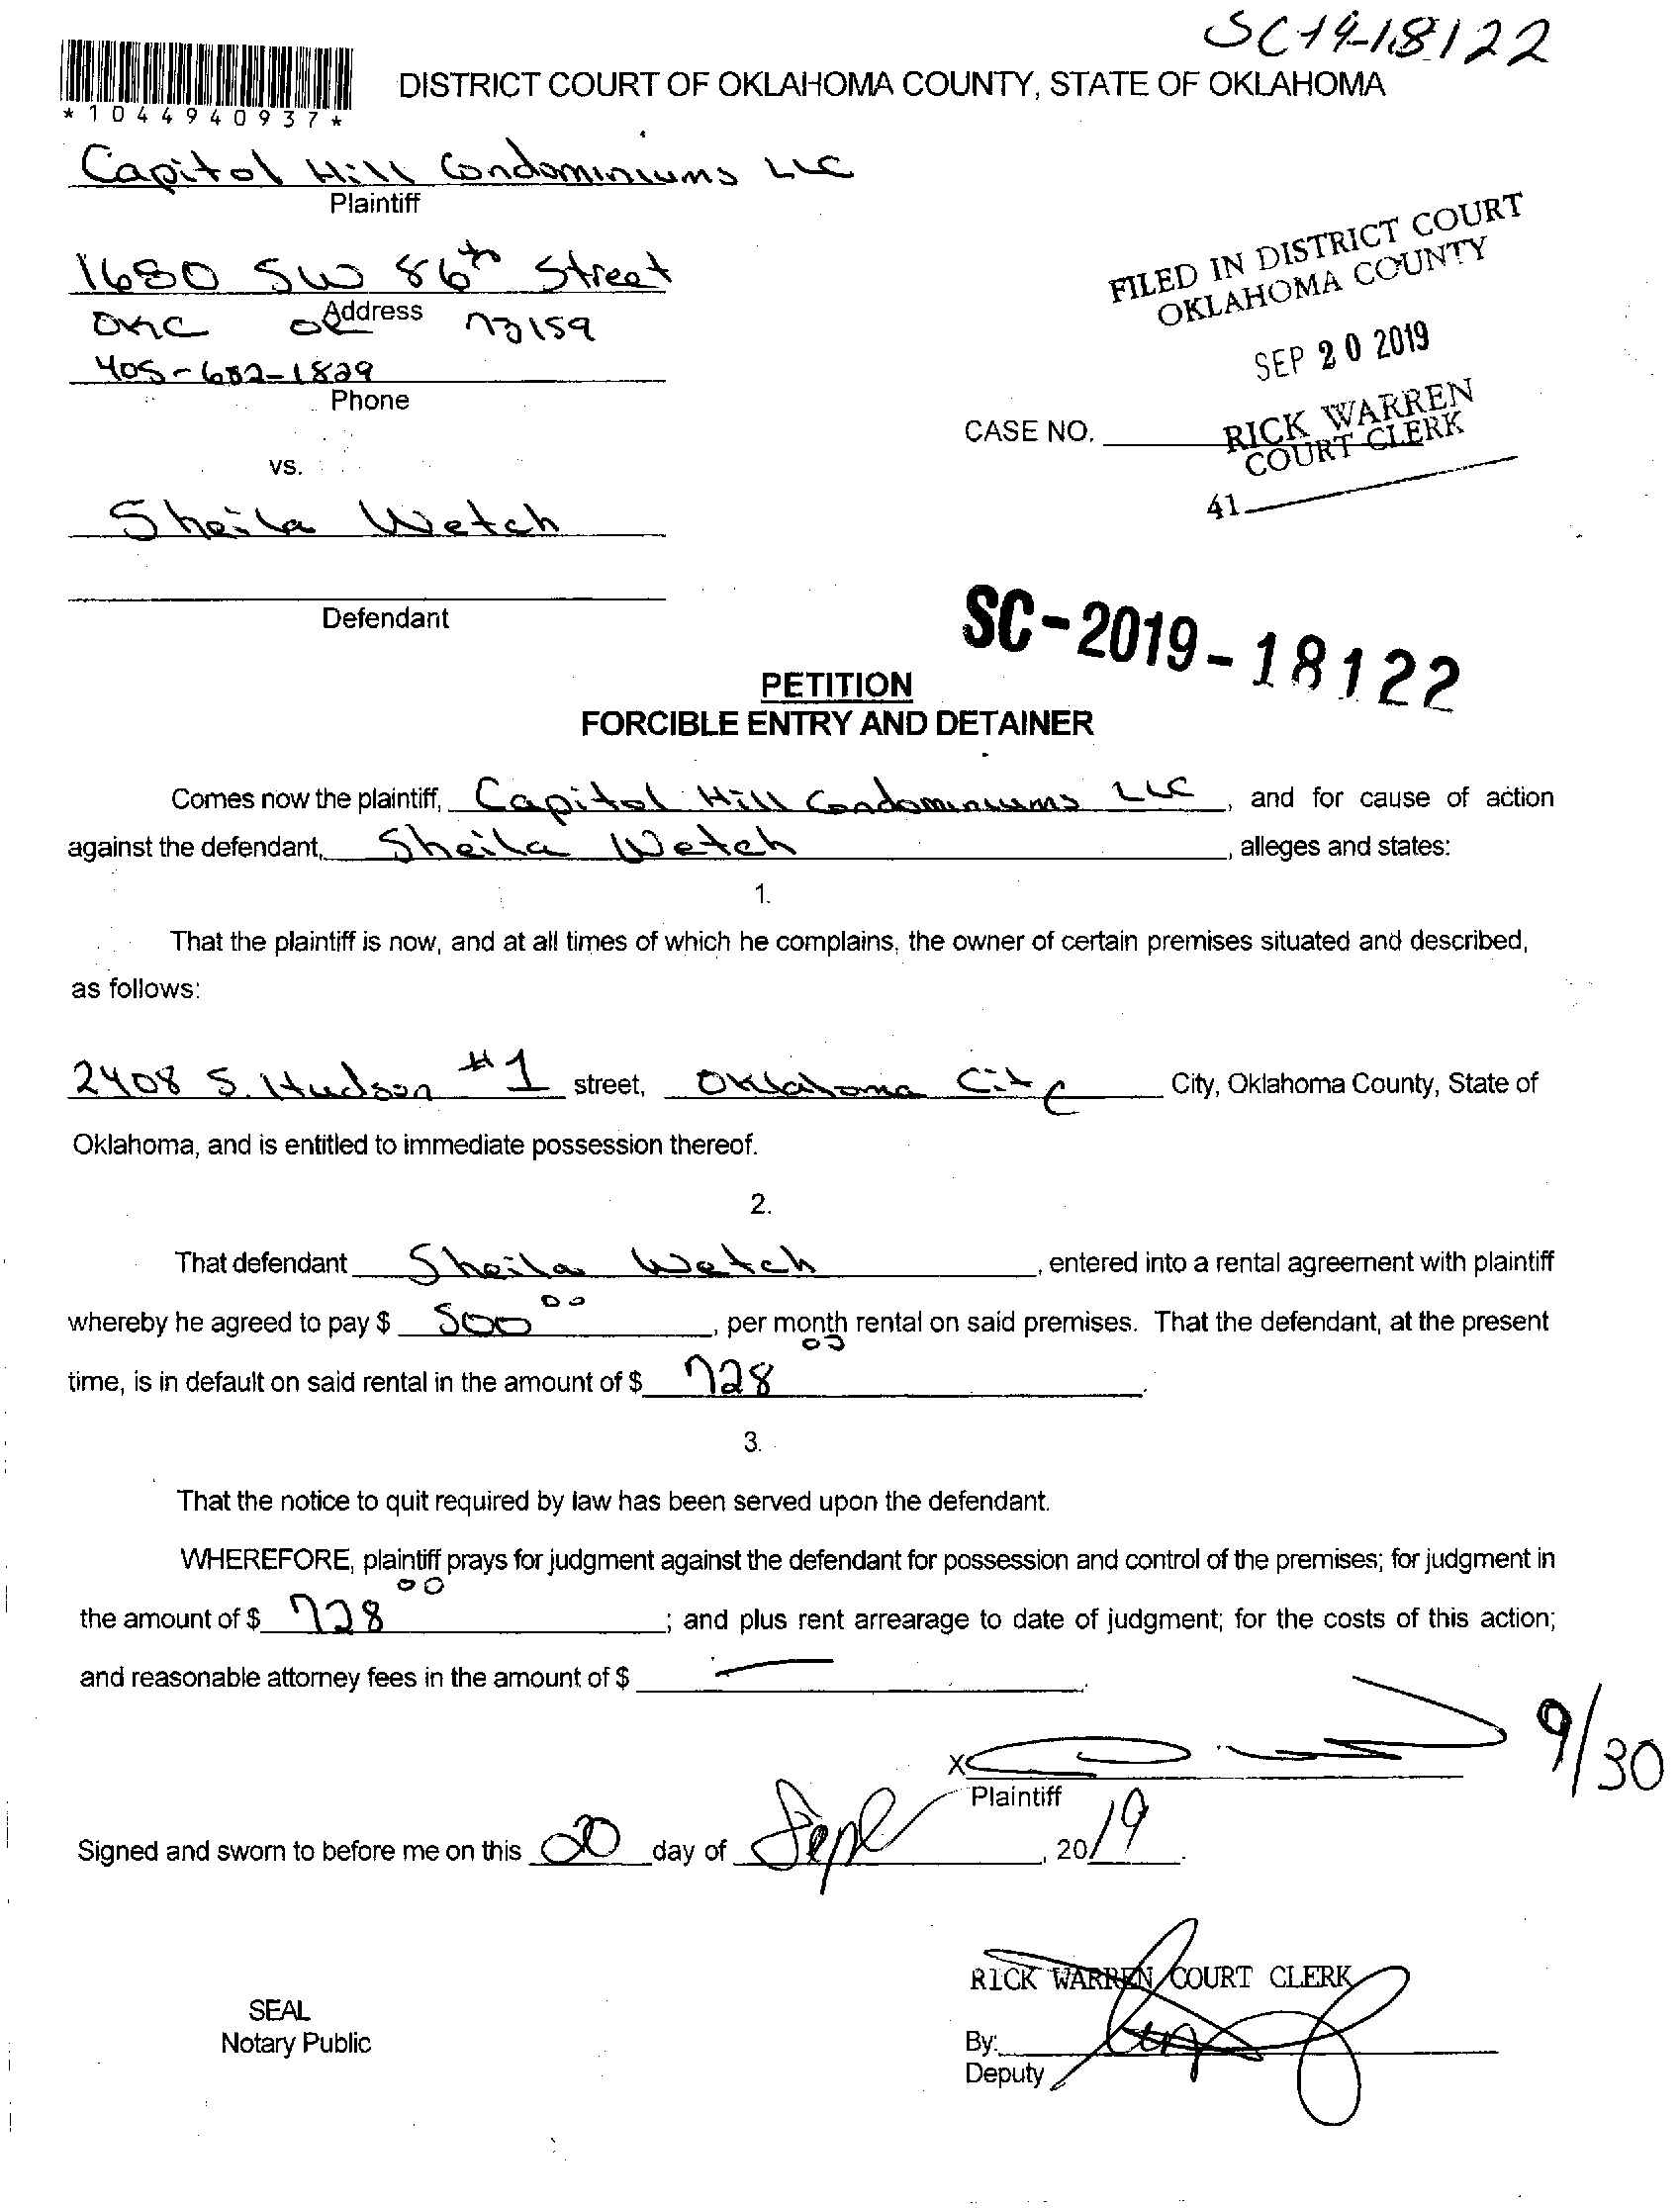 SC19-18122
*1044940937*
DISTRICT COURT OF OKLAHOMA COUNTY, STATE OF OKLAHOMA
Capitol Hill Condominiums LLC
Plaintiff
1680 SW 86th Street
Address
OKC OK 73159
405-682-1829
Phone
FILED IN DISTRICT COURT
OKLAHOMA COUNTY
SEP 20 2019
RICK WARREN
COURT CLERK
41
CASE NO.
vs.
Sheila Wetch
Defendant
SC-2019-18122
PETITION
FORCIBLE ENTRY AND DETAINER
Comes now the plaintiff, Capitol Hill Condominiums LLC, and for cause of action
against the defendant, Sheila Wetch, alleges and states:
1.
That the plaintiff is now, and at all times of which he complains, the owner of certain premises situated and described,
as follows:
2408 S. Hudson #1 street, Oklahoma City City, Oklahoma County, State of
Oklahoma, and is entitled to immediate possession thereof.
2.
That defendant Sheila Wetch, entered into a rental agreement with plaintiff
whereby he agreed to pay $ 500 00, per month rental on said premises. That the defendant, at the present
time, is in default on said rental in the amount of $ 728 00.
3.
That the notice to quit required by law has been served upon the defendant.
WHEREFORE, plaintiff prays for judgment against the defendant for possession and control of the premises; for judgment in
the amount of $ 728 00; and plus rent arrearage to date of judgment; for the costs of this action;
and reasonable attorney fees in the amount of $ —.
9/30
X
Plaintiff
Signed and sworn to before me on this 20 day of Sept, 2019.
RICK WARREN COURT CLERK
SEAL
Notary Public
By:
Deputy